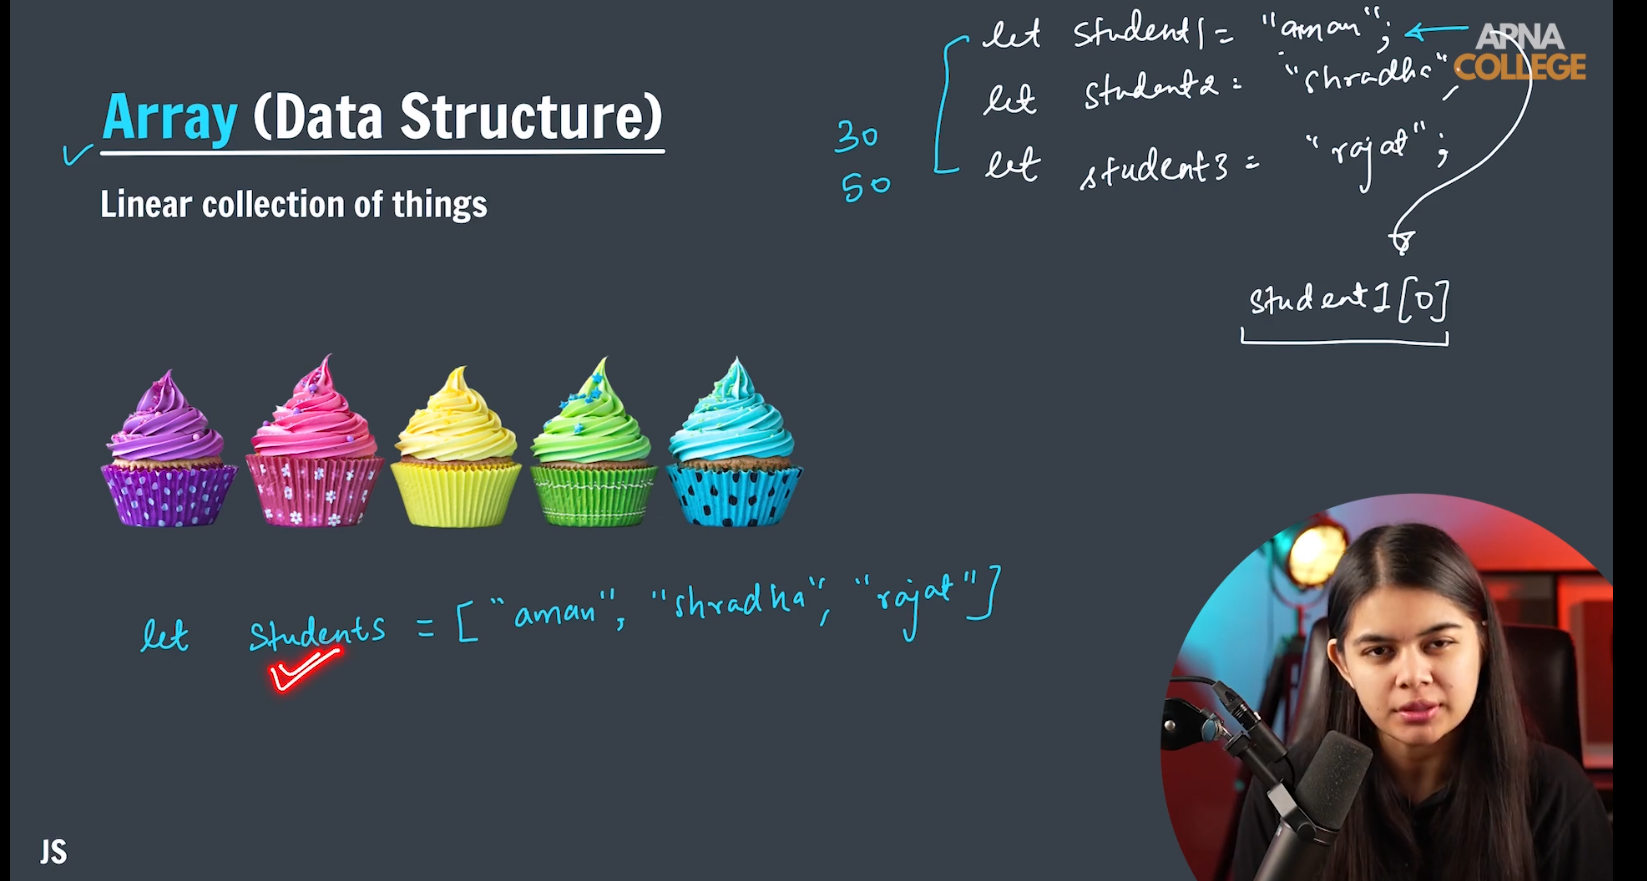 Array (Data Structure)
Linear collection of things
30
50
let student1 = "aman";
let student2 = "shradha",
let student3 = "rajat";
APNA
COLLEGE
student1[0]
let students = ["aman", "shradha", "rajat"]
JS